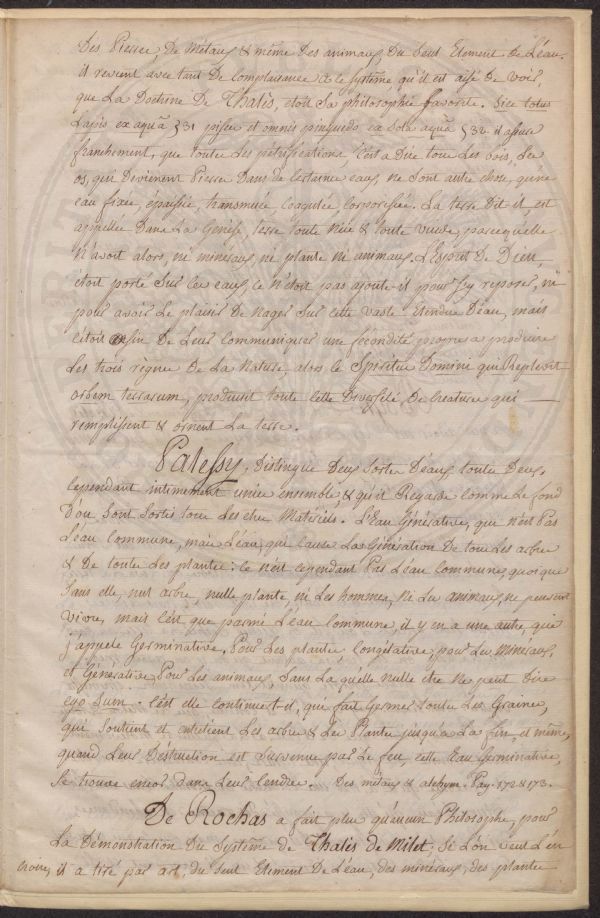 Des Pierres, De Métaux & même Des animaux, Du Seul Element De L'eau.
il revient avec tant De Complaisance a ce système qu'il est aisé De voir,
que La Doctrine De Thalès, etoit Sa philosophie favorite. Sicc totus
Lapis ex aquâ §31 pisces et omnis pinguedo, ex Sola aquâ §32. il assure
franchement, que toutes Les pétrifications C'est a Dire tous Les bois, Les
os, qui Devienent Pierres Dans de Certaines eaux, ne Sont autre chose, qu'une
eau fixée, épaissie, transmuée, Coagulée Corporifiée. La terre Dit-il, est
appellée Dans La Genèse, terre toute nüe & toute vuide, parcequ'elle
N'avoit alors, ni minéraux ni plantes ni animaux. L'Esprit De Dieu
étoit porté Sur les eaux, Ce N'étoit pas ajoute-il pour s'y reposer, ni
pour avoir Le plaisir De Nager Sur Cette vaste Etendue D'eau, mais
C'étoit afin De Leur Communiquer une fécondité propre a produire
Les trois règnes De La Nature, alors Le Spiritus Domini qui Replevit
orbem terrarum, produisit toute Cette Diversité De Creatures qui
remplissent & ornent La terre.
Palessy, Distingue Deux Sortes D'eaux, toutes Deux
Cependant intimement unies ensemble, & qu'il Regarde Comme Le fond
D'où Sont Sortis tous Les etres Matériels. L'Eau Générative, qui N'est Pas
L'eau Commune, mais L'eau, qui Cause La Génération De tous Les arbres
& De toutes Les plantes: Ce N'est Cependant Pas L'eau Commune, quoique
Sans elle, nul arbre, nulle plante, ni Les hommes, Ni Les animaux, ne peuvent
vivre, mais C'est que parmi L'eau Commune, il y en a une autre, que
j'appele Germinative, Pour Les plantes, Congélative, pour Les Minéraux,
et Générative, Pour Les animaux, Sans La quelle nulle etre Ne peut Dire
ego Sum. C'est elle Continue-t-il, qui fait Germer toutes Les Graines,
qui Soutient et entretient Les arbres & Les Plantes jusqu'a La fin, et même,
quand Leur Destruction est Survenue par Le feu, Cette Eau Germinative,
Se trouve encor Dans Leurs Cendres. Des métaux & alchym. Pag. 172 & 173.
De Rochas a fait plus qu'aucun Philosophe, pour
La Démonstration Du Système De Thalès De Milet, Se L'on veut L'en
Croire, il a tiré par art, du Seul Element De L'eau, des minéraux, des plantes